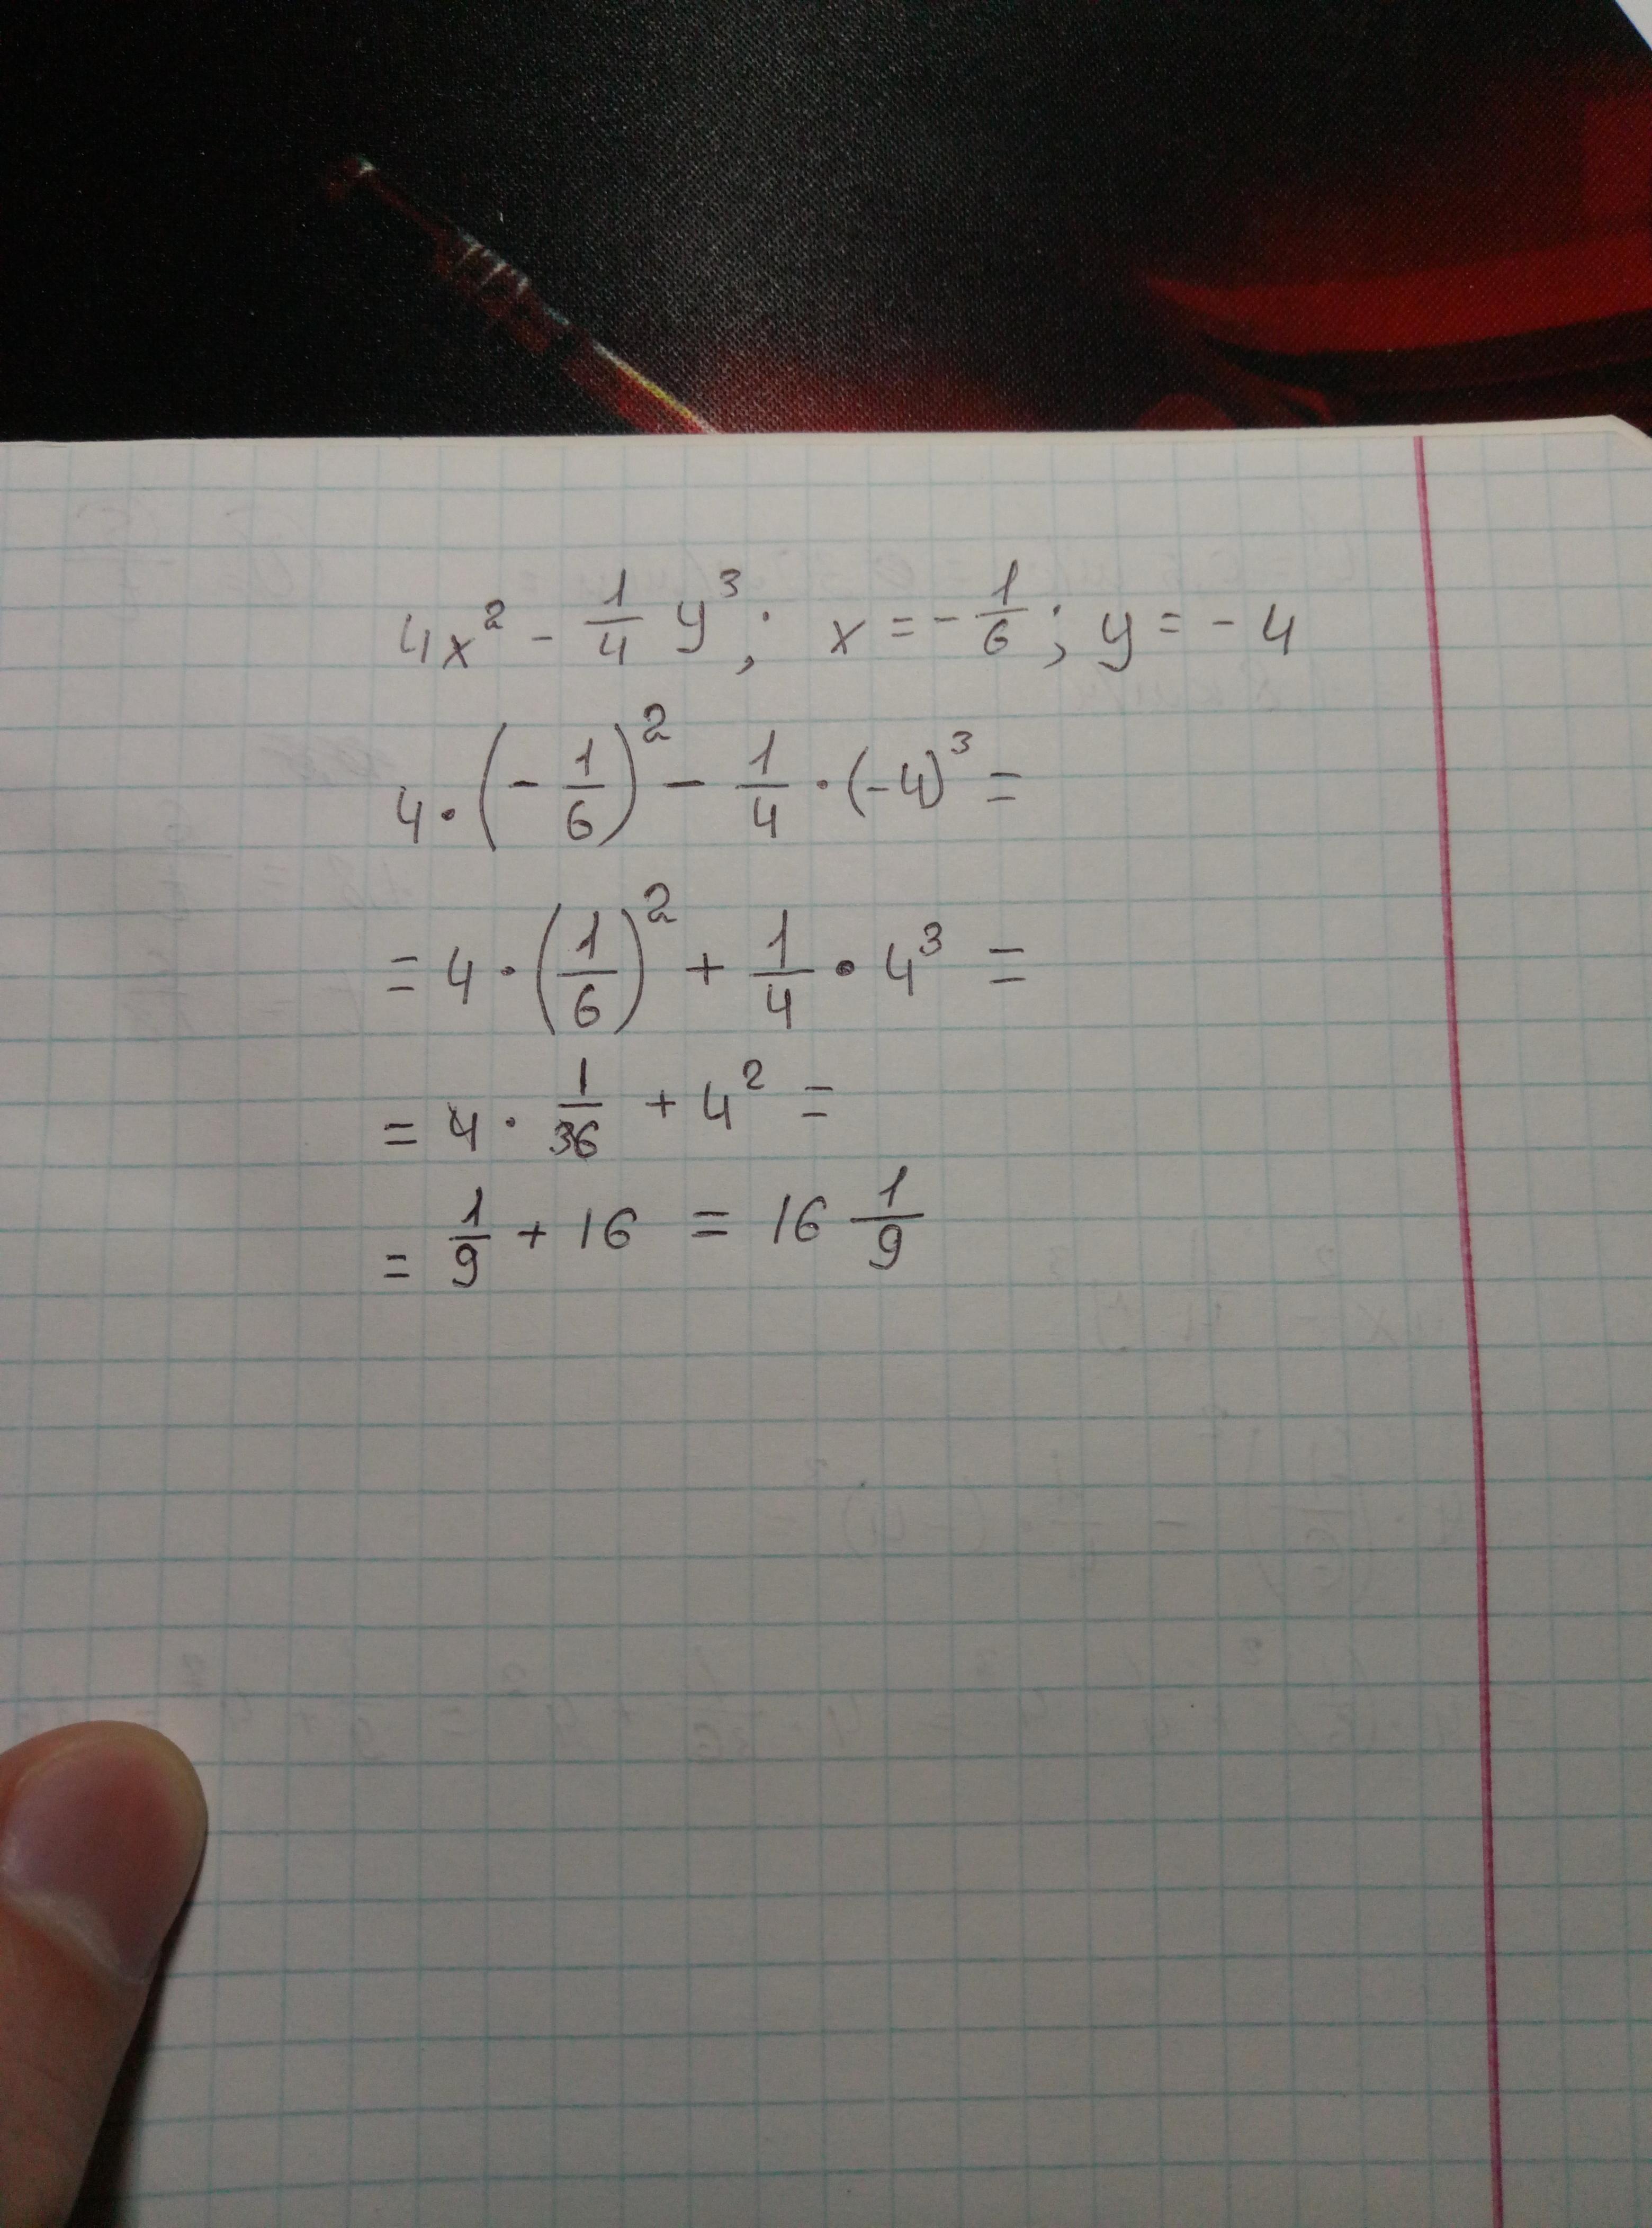 4x² - 1/4 y³; x = - 1/6; y = - 4
4 · (- 1/6)² - 1/4 · (-4)³ =
= 4 · (1/6)² + 1/4 · 4³ =
= 4 · 1/36 + 4² =
= 1/9 + 16 = 16 1/9